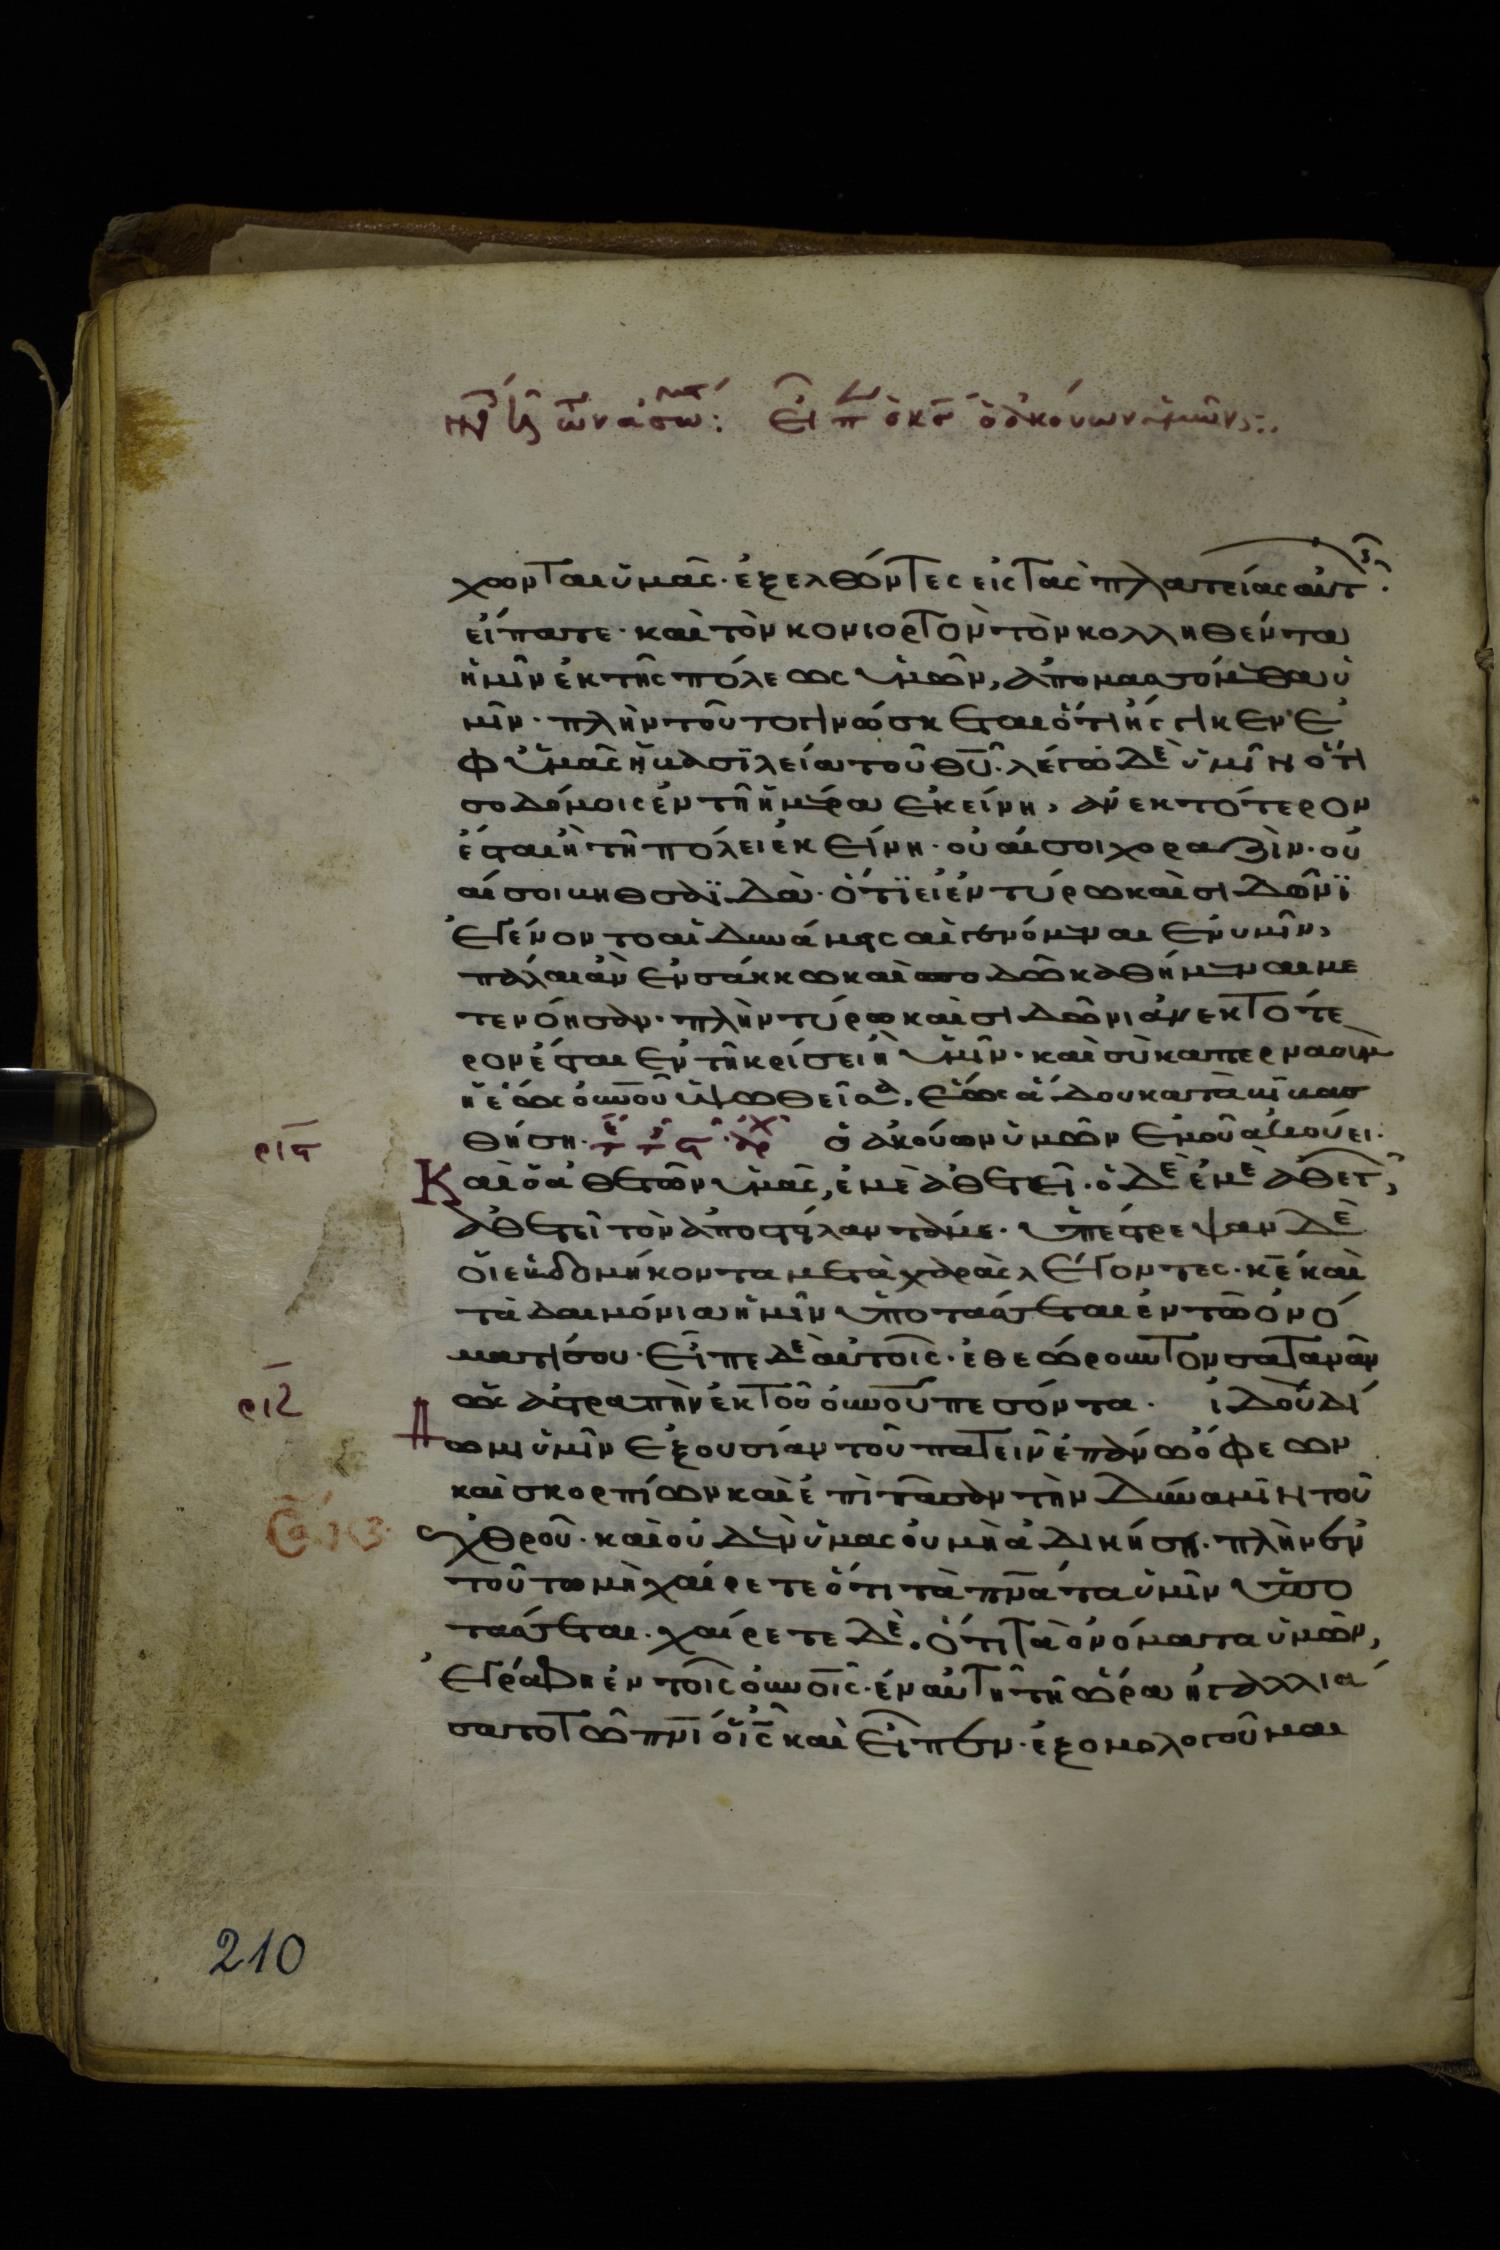 εἶπ ὁ κς ὁ ἀκούων ὑμῶν
χωνται ὑμᾶς· ἐξελθόντες εἰς τὰς πλατείας αὐτ
εἴπατε· καὶ τὸν κονιορτὸν τὸν κολληθέντα
ἡμῖν ἐκ τῆς πόλεως ὑμῶν, ἀπομασσόμεθα ὑ
μῖν· πλὴν τοῦτο γινώσκεται ὅτι ἤγγικεν ἐ
φ ὑμᾶς ἡ βασιλεία τοῦ θυ· λέγω δὲ ὑμῖν ὅτι
σοδόμοις ἐν τῇ ἡμέρα ἐκείνη, ἀνεκτότερον
ἔσται ἢ τῇ πόλει ἐκείνη· οὐαί σοι χοραζίν· οὐ
αί σοι βηθσαϊδά· ὅτι εἰ ἐν τύρω καὶ σιδῶνϊ
ἐγένοντο αἱ δυνάμεις αἱ γενόμεναι ἐν ὑμῖν,
πάλαι ἂν ἐν σάκκω καὶ σποδῶ καθήμεναι με
τενόησαν· πλὴν τύρω καὶ σιδῶνι ἀνεκτότε
ρον ἔσται ἐν τῇ κρίσει ἢ ὑμῖν· καὶ σὺ καπερναοὺμ
ἡ ἕως οὐνοῦ ὑψωθεῖσα, ἕως ἅδου καταβιβασ
ριϛ θήση· ὁ ἀκούων ὑμῶν ἐμοῦ ἀκούει·
Καὶ ὁ ἀθετῶν ὑμᾶς, ἐμὲ ἀθετεῖ· ὁ δὲ ἐμὲ ἀθετ,
ἀθετεῖ τὸν ἀποστείλαντά με· ὑπέστρεψαν δὲ
οἱ ἑβδομήκοντα μετὰ χαρᾶς λέγοντες· κε καὶ
τὰ δαιμόνια ἡμῖν ὑποτάσσεται ἐν τῶ ὀνό
ματί σου· εἶπε δὲ αὐτοῖς· ἐθεώρουν τὸν σατανᾶν
ριζ ὡς ἀστραπὴν ἐκ τοῦ οὐνοῦ πεσόντα· ἰδοὺ δί
δωμι ὑμῖν ἐξουσίαν τοῦ πατεῖν ἐπάνω ὄφεων
καὶ σκορπίων καὶ ἐπὶ πᾶσαν τὴν δύναμιν τοῦ
ἐχθροῦ· καὶ οὐδὲν ὑμᾶς οὐ μὴ ἀδικήσει· πλὴν ἐν
τούτω μὴ χαίρετε ὅτι τὰ πνατα ὑμῖν ὑπο
τάσσεται· χαίρετε δὲ, ὅτι τὰ ὀνόματα ὑμῶν,
ἐγράφη ἐν τοῖς οὐνοῖς· ἐν αὐτῆ τῆ ὥρα ἠγαλλιά
σατο τῶ πνι ὁ ις καὶ εἶπεν· ἐξομολογοῦμαι
210